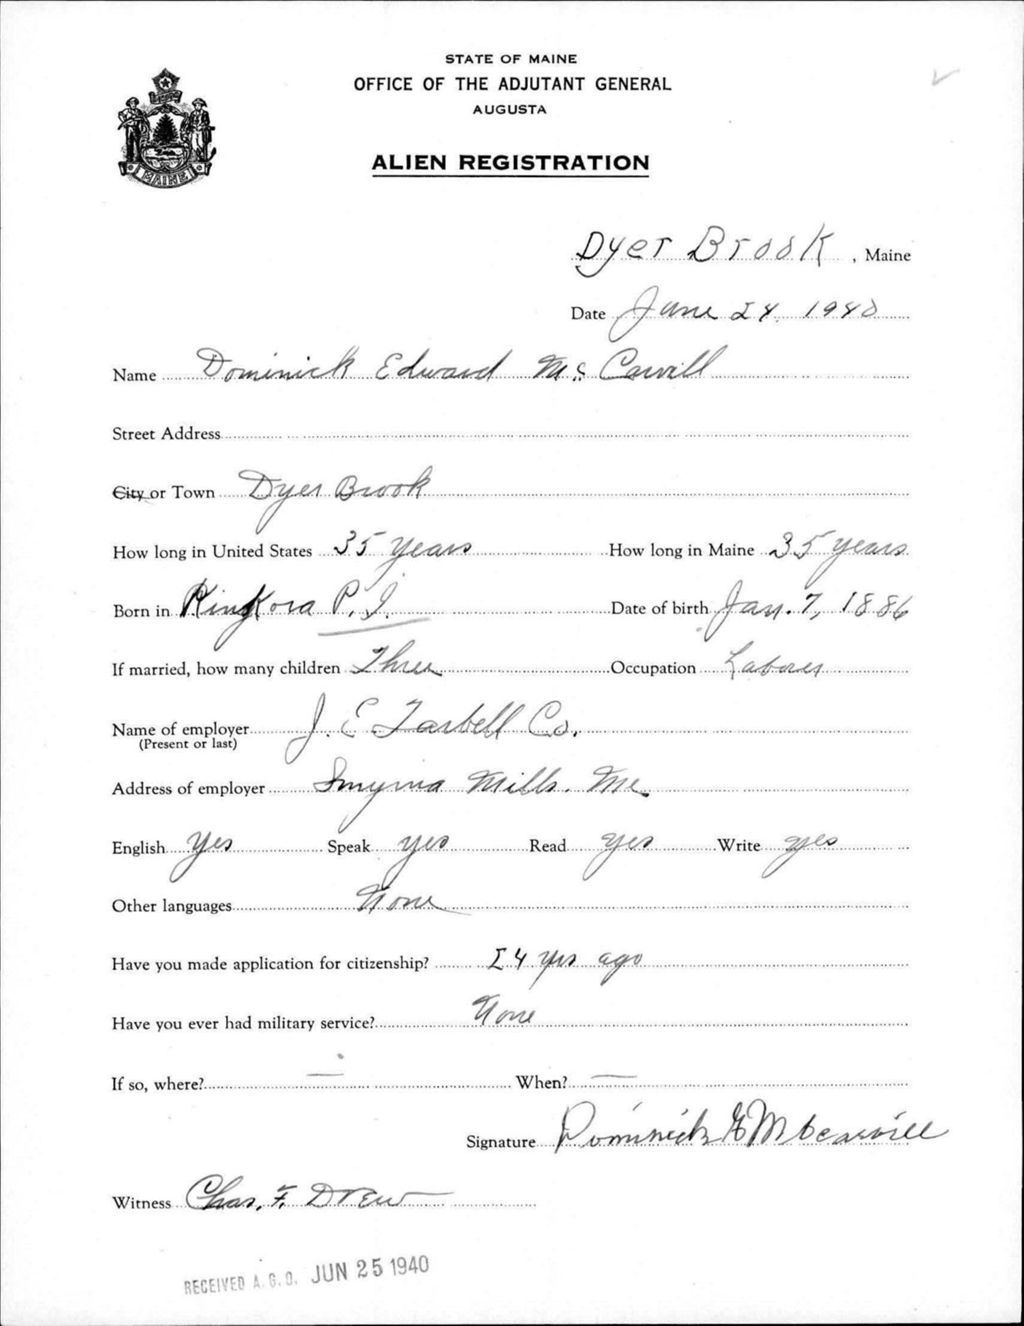 STATE OF MAINE
OFFICE OF THE ADJUTANT GENERAL
AUGUSTA
ALIEN REGISTRATION
MAINE
Dyer Brook, Maine
Date June 24, 1940
Name Dominick Edward McCarvill
Street Address
City or Town Dyer Brook
How long in United States 35 years How long in Maine 35 years
Born in Kinkora P.I. Date of birth Jan. 7, 1886
If married, how many children Three Occupation Laborer
Name of employer J. E. Tarbell Co.
(Present or last)
Address of employer Smyrna Mills. Me.
English Yes Speak yes Read yes Write yes
Other languages None
Have you made application for citizenship? 24 yrs ago
Have you ever had military service? None
If so, where? — When? —
Signature Dominick E McCarvill
Witness Chas. F. Drew
RECEIVED A.G.O. JUN 25 1940